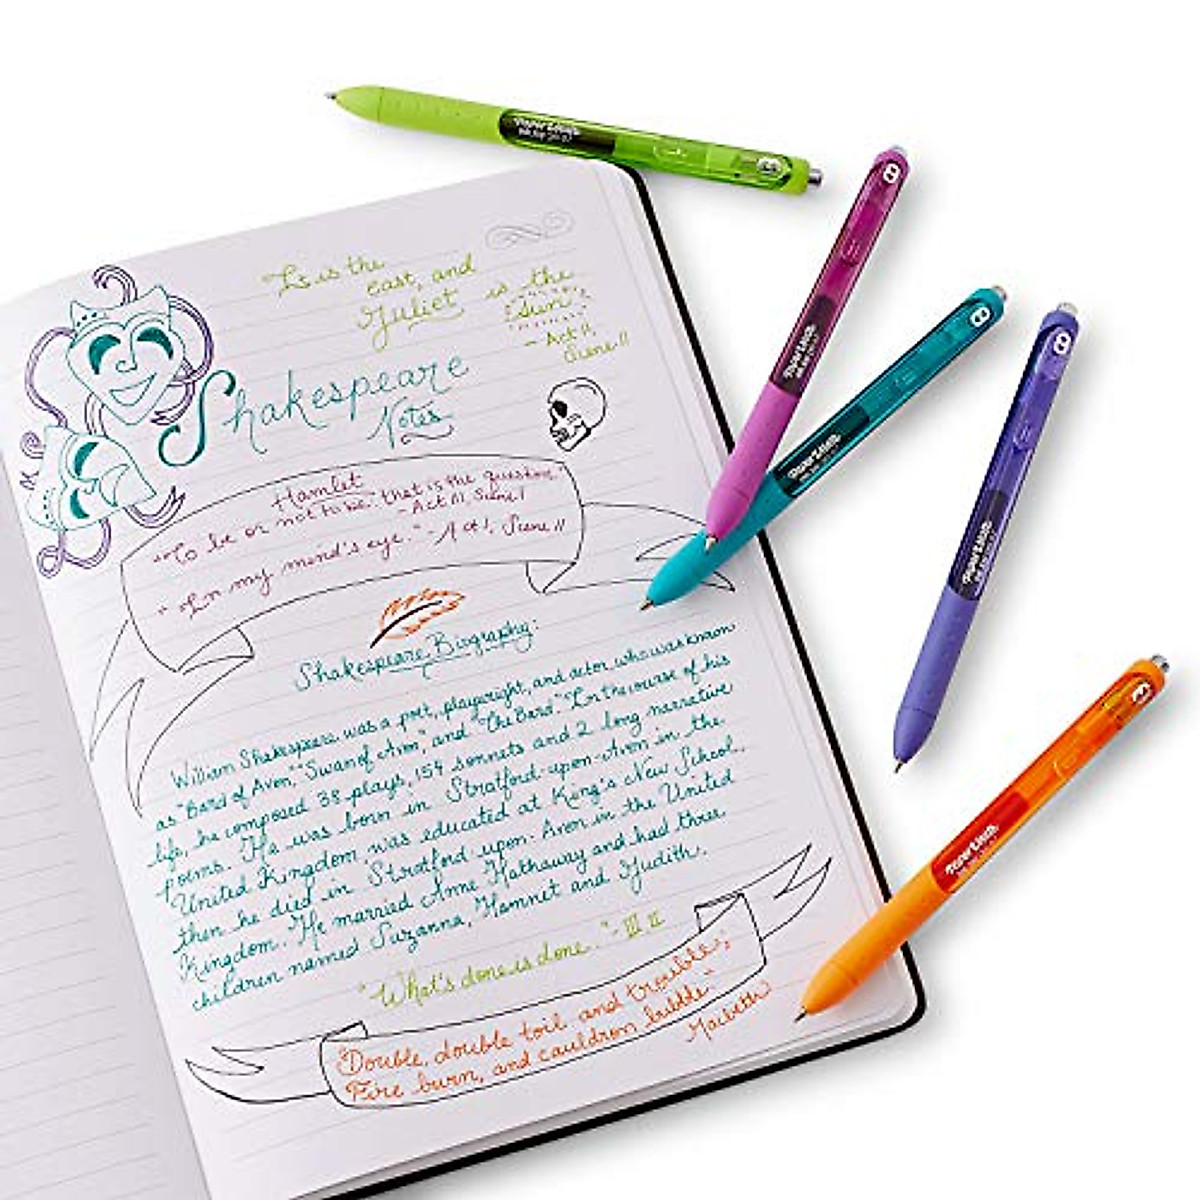 It is the
east, and
Juliet is the
sun.
- Act II,
Scene II
Shakespeare
Notes
Hamlet
"To be or not to be: that is the question"
- Act III, Scene I
"In my mind's eye." - Act I, Scene II
Shakespeare Biography:
William Shakespeare was a poet, playwright, and actor who was known
as "Bard of Avon," "Swan of Avon," and "The Bard." In the course of his
life, he composed 38 plays, 154 sonnets and 2 long narrative
poems. He was born in Stratford-upon-Avon in the
United Kingdom was educated at King's New School,
then he died in Stratford-upon-Avon in the United
Kingdom. He married Anne Hathaway and had three
children named Suzanna, Hamnet and Judith.
"What's done is done." - III II
"Double, double toil and trouble;
Fire burn, and cauldron bubble."
Macbeth
PaperMate
PaperMate
PaperMate
PaperMate
PaperMate